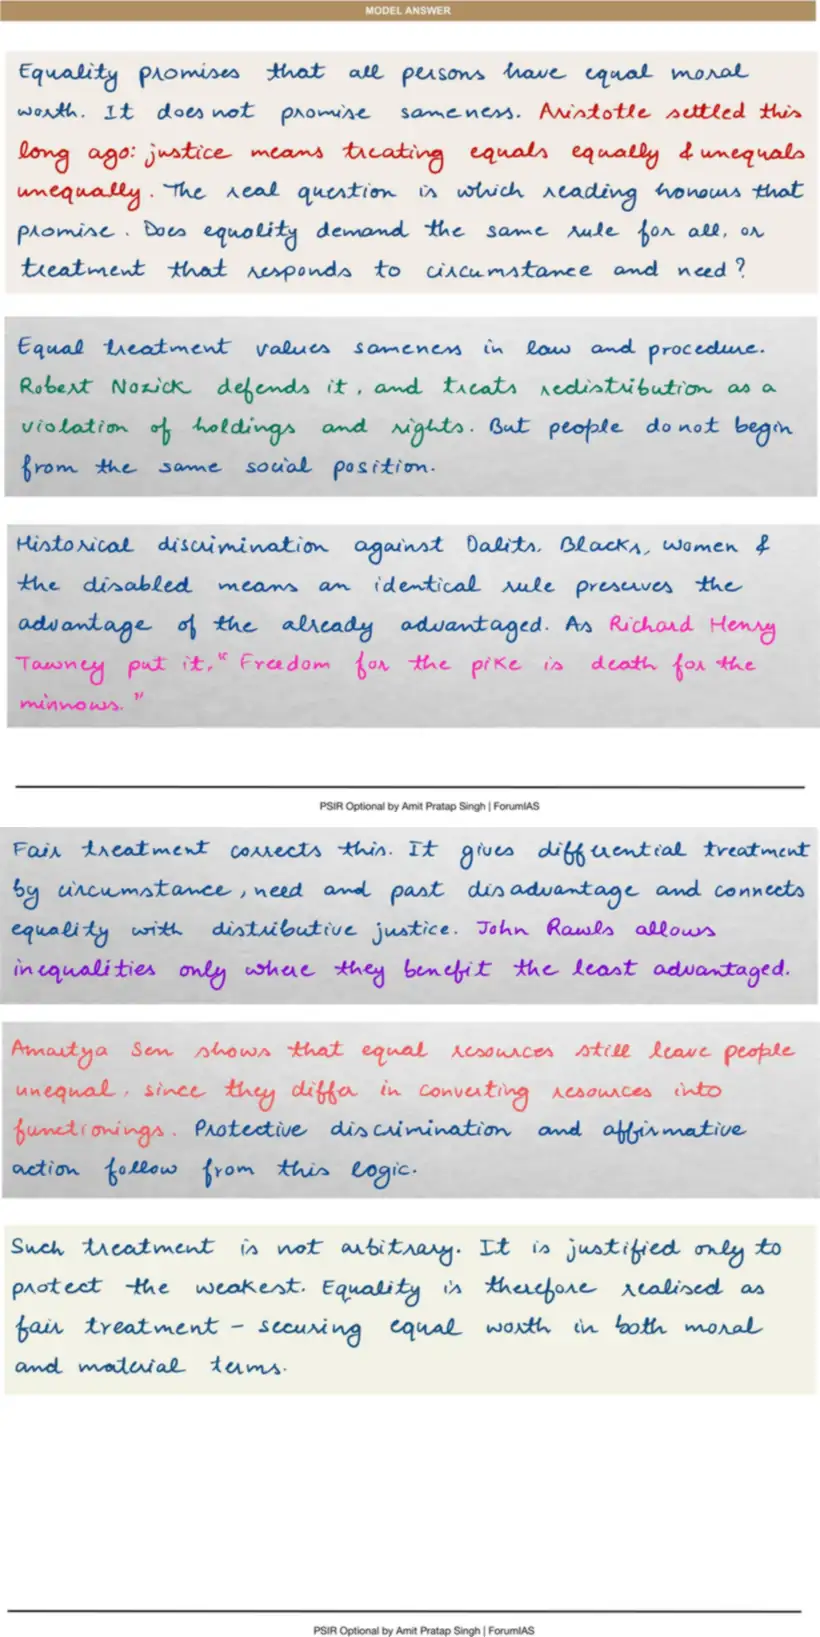 MODEL ANSWER
Equality promises that all persons have equal moral
worth. It does not promise sameness. Aristotle settled this
long ago: justice means treating equals equally & unequals
unequally. The real question is which reading honours that
promise. Does equality demand the same rule for all, or
treatment that responds to circumstance and need?
Equal treatment values sameness in law and procedure.
Robert Nozick defends it, and treats redistribution as a
violation of holdings and rights. But people do not begin
from the same social position.
Historical discrimination against Dalits, Blacks, women &
the disabled means an identical rule preserves the
advantage of the already advantaged. As Richard Henry
Tawney put it, "Freedom for the pike is death for the
minnows."
PSIR Optional by Amit Pratap Singh | ForumIAS
Fair treatment corrects this. It gives differential treatment
by circumstance, need and past disadvantage and connects
equality with distributive justice. John Rawls allows
inequalities only where they benefit the least advantaged.
Amartya Sen shows that equal resources still leave people
unequal, since they differ in converting resources into
functionings. Protective discrimination and affirmative
action follow from this logic.
Such treatment is not arbitrary. It is justified only to
protect the weakest. Equality is therefore realised as
fair treatment – securing equal worth in both moral
and material terms.
PSIR Optional by Amit Pratap Singh | ForumIAS